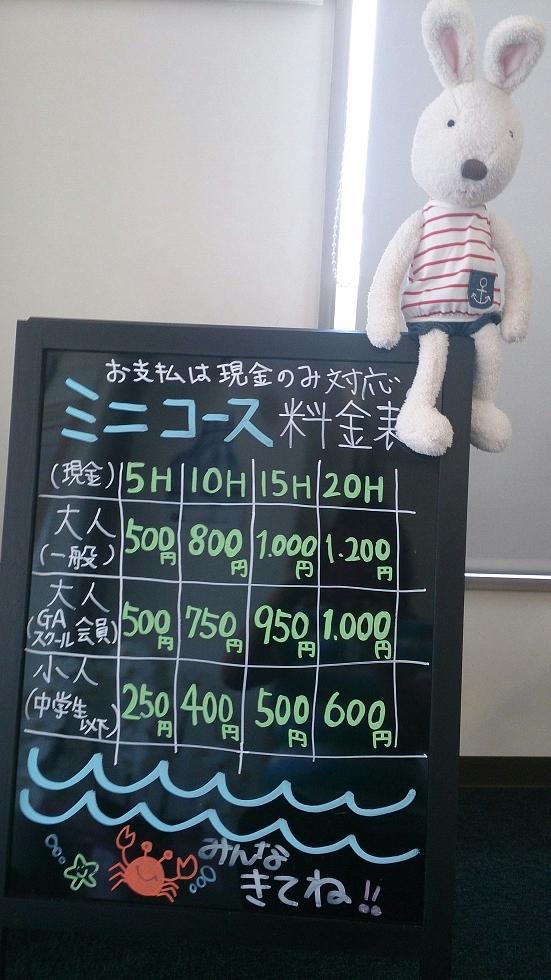 お支払は現金のみ対応
ミニコース 料金表
(現金) 5H 10H 15H 20H
大人(一般) 500円 800円 1.000円 1.200円
大人(GAスクール会員) 500円 750円 950円 1.000円
小人(中学生以下) 250円 400円 500円 600円
みんな
きてね!!